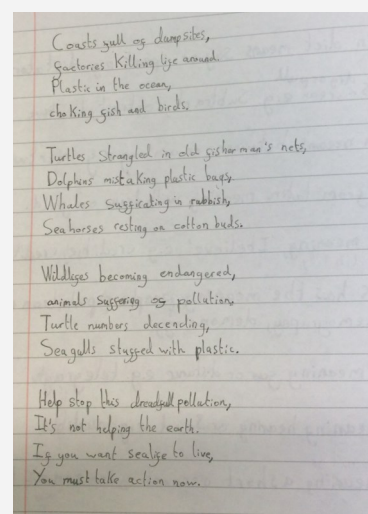 Coasts full of dumpsites,
factories Killing life around.
Plastic in the ocean,
choking fish and birds.
Turtles strangled in old fisherman's nets,
Dolphins mistaking plastic bags,
Whales sufficating in rubbish,
Seahorses resting on cotton buds.
Wildlifes becoming endangered,
animals suffering of pollution,
Turtle numbers decending,
Seagulls stuffed with plastic.
Help stop this dreadfull pollution,
It's not helping the earth.
If you want sealife to live,
You must take action now.